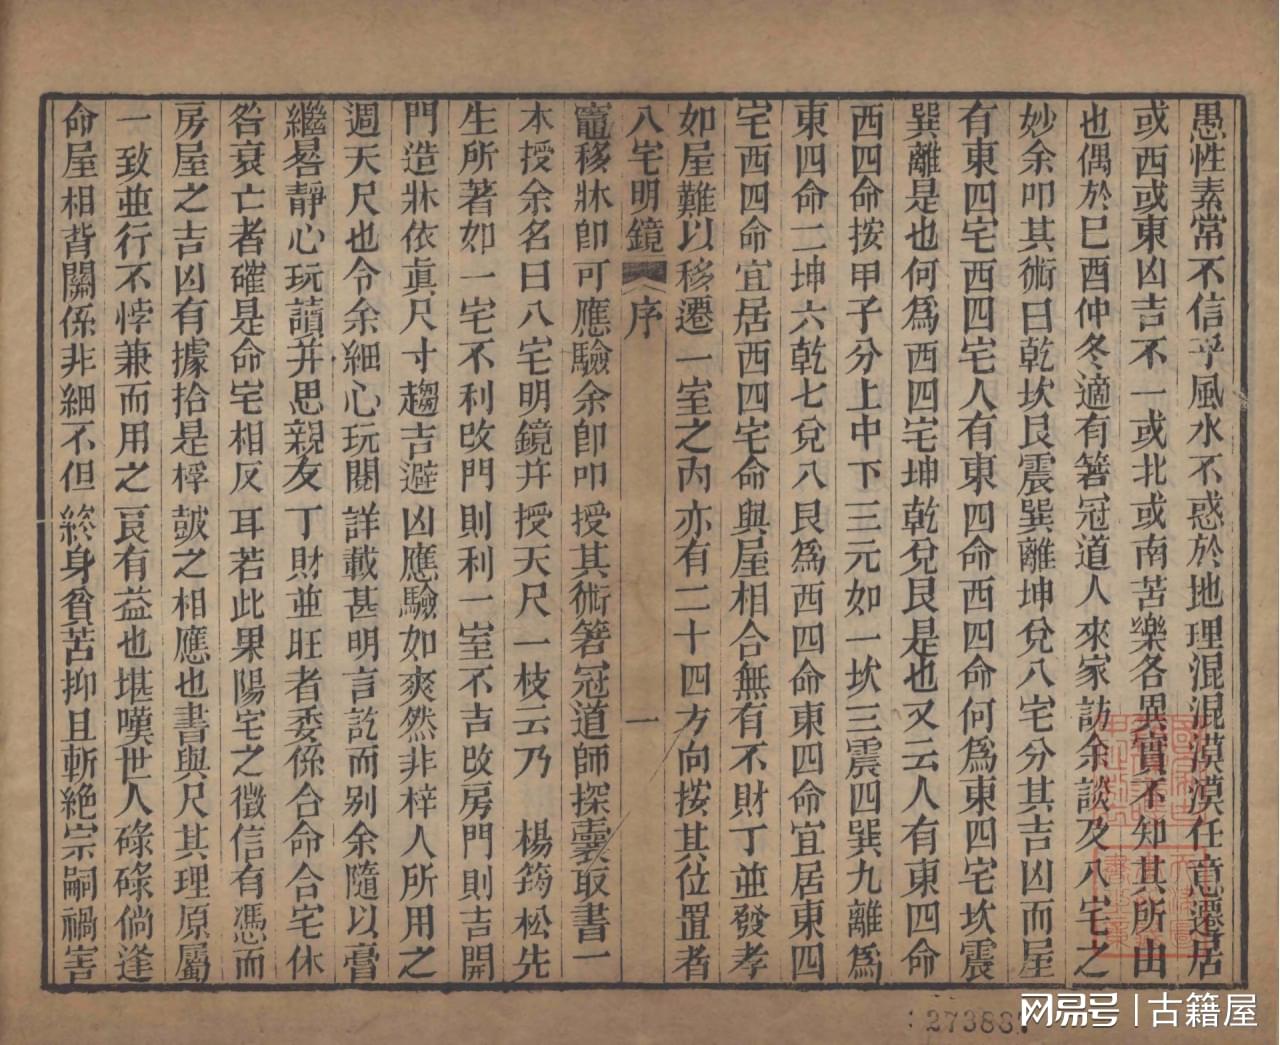 愚性素常不信乎風水不惑於地理混混漠漠任意遷居
或西或東凶吉不一或北或南苦樂各異實不知其所由
也偶於巳酉仲冬適有簪冠道人來家訪余談及八宅之
妙余叩其術曰乾坎艮震巽離坤兌八宅分其吉凶而屋
有東四宅西四宅人有東四命西四命何爲東四宅坎震
巽離是也何爲西四宅坤乾兌艮是也又云人有東四命
西四命按甲子分上中下三元如一坎三震四巽九離爲
東四命二坤六乾七兌八艮爲西四命東四命宜居東四
宅西四命宜居西四宅命與屋相合無有不財丁並發孝
如屋難以移遷一室之內亦有二十四方向按其位置者
八宅明鏡 序 一
竈移牀卽可應驗余卽叩授其術簪冠道師探囊取書一
本授余名曰八宅明鏡幷授天尺一枝云乃 楊筠松先
生所著如一宅不利改門則利一室不吉改房門則吉開
門造牀依眞尺寸趨吉避凶應驗如爽然非梓人所用之
週天尺也令余細心玩閱詳載甚明言訖而别余隨以膏
繼晷靜心玩讀幷思親友丁財並旺者委係合命合宅休
咎衰亡者確是命宅相反耳若此果陽宅之徵信有憑而
房屋之吉凶有據拾是桴鼓之相應也書與尺其理原屬
一致並行不悖兼而用之良有益也堪嘆世人碌碌倘逢
命屋相背關係非細不但終身貧苦抑且斬絶宗嗣禍害
273883
网易号 | 古籍屋